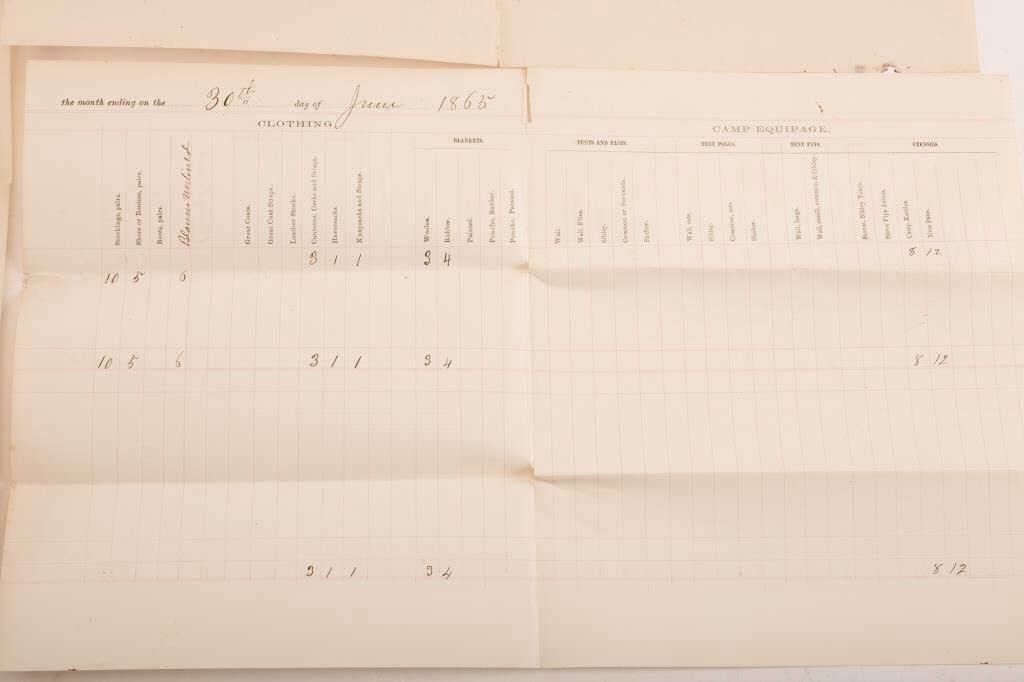 the month ending on the 30th day of June 1865
CLOTHING. CAMP EQUIPAGE.
BLANKETS. TENTS AND FLIES. TENT POLES. TENT PINS.
Stockings, pairs. Shoes or Bootees, pairs. Boots, pairs. Blouses unlined Great Coats. Great Coat Straps. Leather Stocks. Canteens, Corks and Straps. Haversacks. Knapsacks and Straps. Woolen. Rubber. Painted. Poncho, Rubber. Poncho, Painted. Wall. Wall Flies. Sibley. Common or Servants. Shelter. Wall, sets. Sibley. Common, sets. Shelter. Wall, large. Wall, small, common & Sibley. Stoves, Sibley Tents. Stove Pipe Joints. Camp Kettles. Mess Pans.
3 1 1 3 4 8 12
10 5 6
10 5 6 3 1 1 3 4 8 12
3 1 1 3 4 8 12